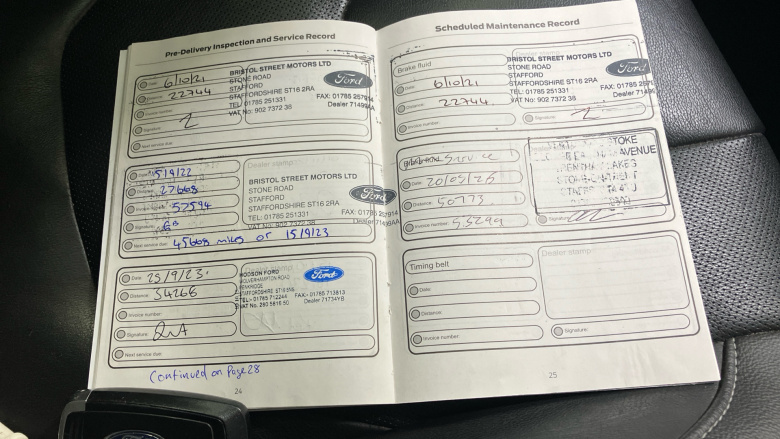 Pre-Delivery Inspection and Service Record
Date: 6/10/21
Distance: 22744
Invoice number:
Signature:
Next service due:
BRISTOL STREET MOTORS LTD
STONE ROAD
STAFFORD
STAFFORDSHIRE ST16 2RA
TEL: 01785 251331
VAT No: 902 7372 38
Ford
FAX: 01785 257914
Dealer 71499AA
Date: 15/9/22
Distance: 27668
52594
Signature:
Next service due: 45668 miles or 15/9/23
Dealer stamp:
BRISTOL STREET MOTORS LTD
STONE ROAD
STAFFORD
STAFFORDSHIRE ST16 2RA
TEL: 01785 251331
VAT No: 902 7372 38
Ford
FAX: 01785 257914
Dealer 71499AA
Date: 25/9/23
Distance: 34266
Invoice number:
Signature:
Next service due:
HODSON FORD
WOLVERHAMPTON ROAD
PENKRIDGE
STAFFORDSHIRE ST19 5NS
TEL:- 01785 712244 FAX:- 01785 713813
VAT No. 280 5816 50 Dealer 71734YB
Ford
Continued on Page 28
24
Scheduled Maintenance Record
Brake fluid
Date: 6/10/21
Distance: 22744
Invoice number:
Dealer stamp:
BRISTOL STREET MOTORS LTD
STONE ROAD
STAFFORD
STAFFORDSHIRE ST16 2RA
TEL: 01785 251331
VAT No: 902 7372 38
Ford
FAX: 01785 257914
Dealer 71499AA
Signature:
Service
Date: 20/05/25
Distance: 50773
Invoice number: 55299
STOKE
AVENUE
LAKES
Signature:
Timing belt
Date:
Distance:
Invoice number:
Dealer stamp:
Signature:
25
Ford